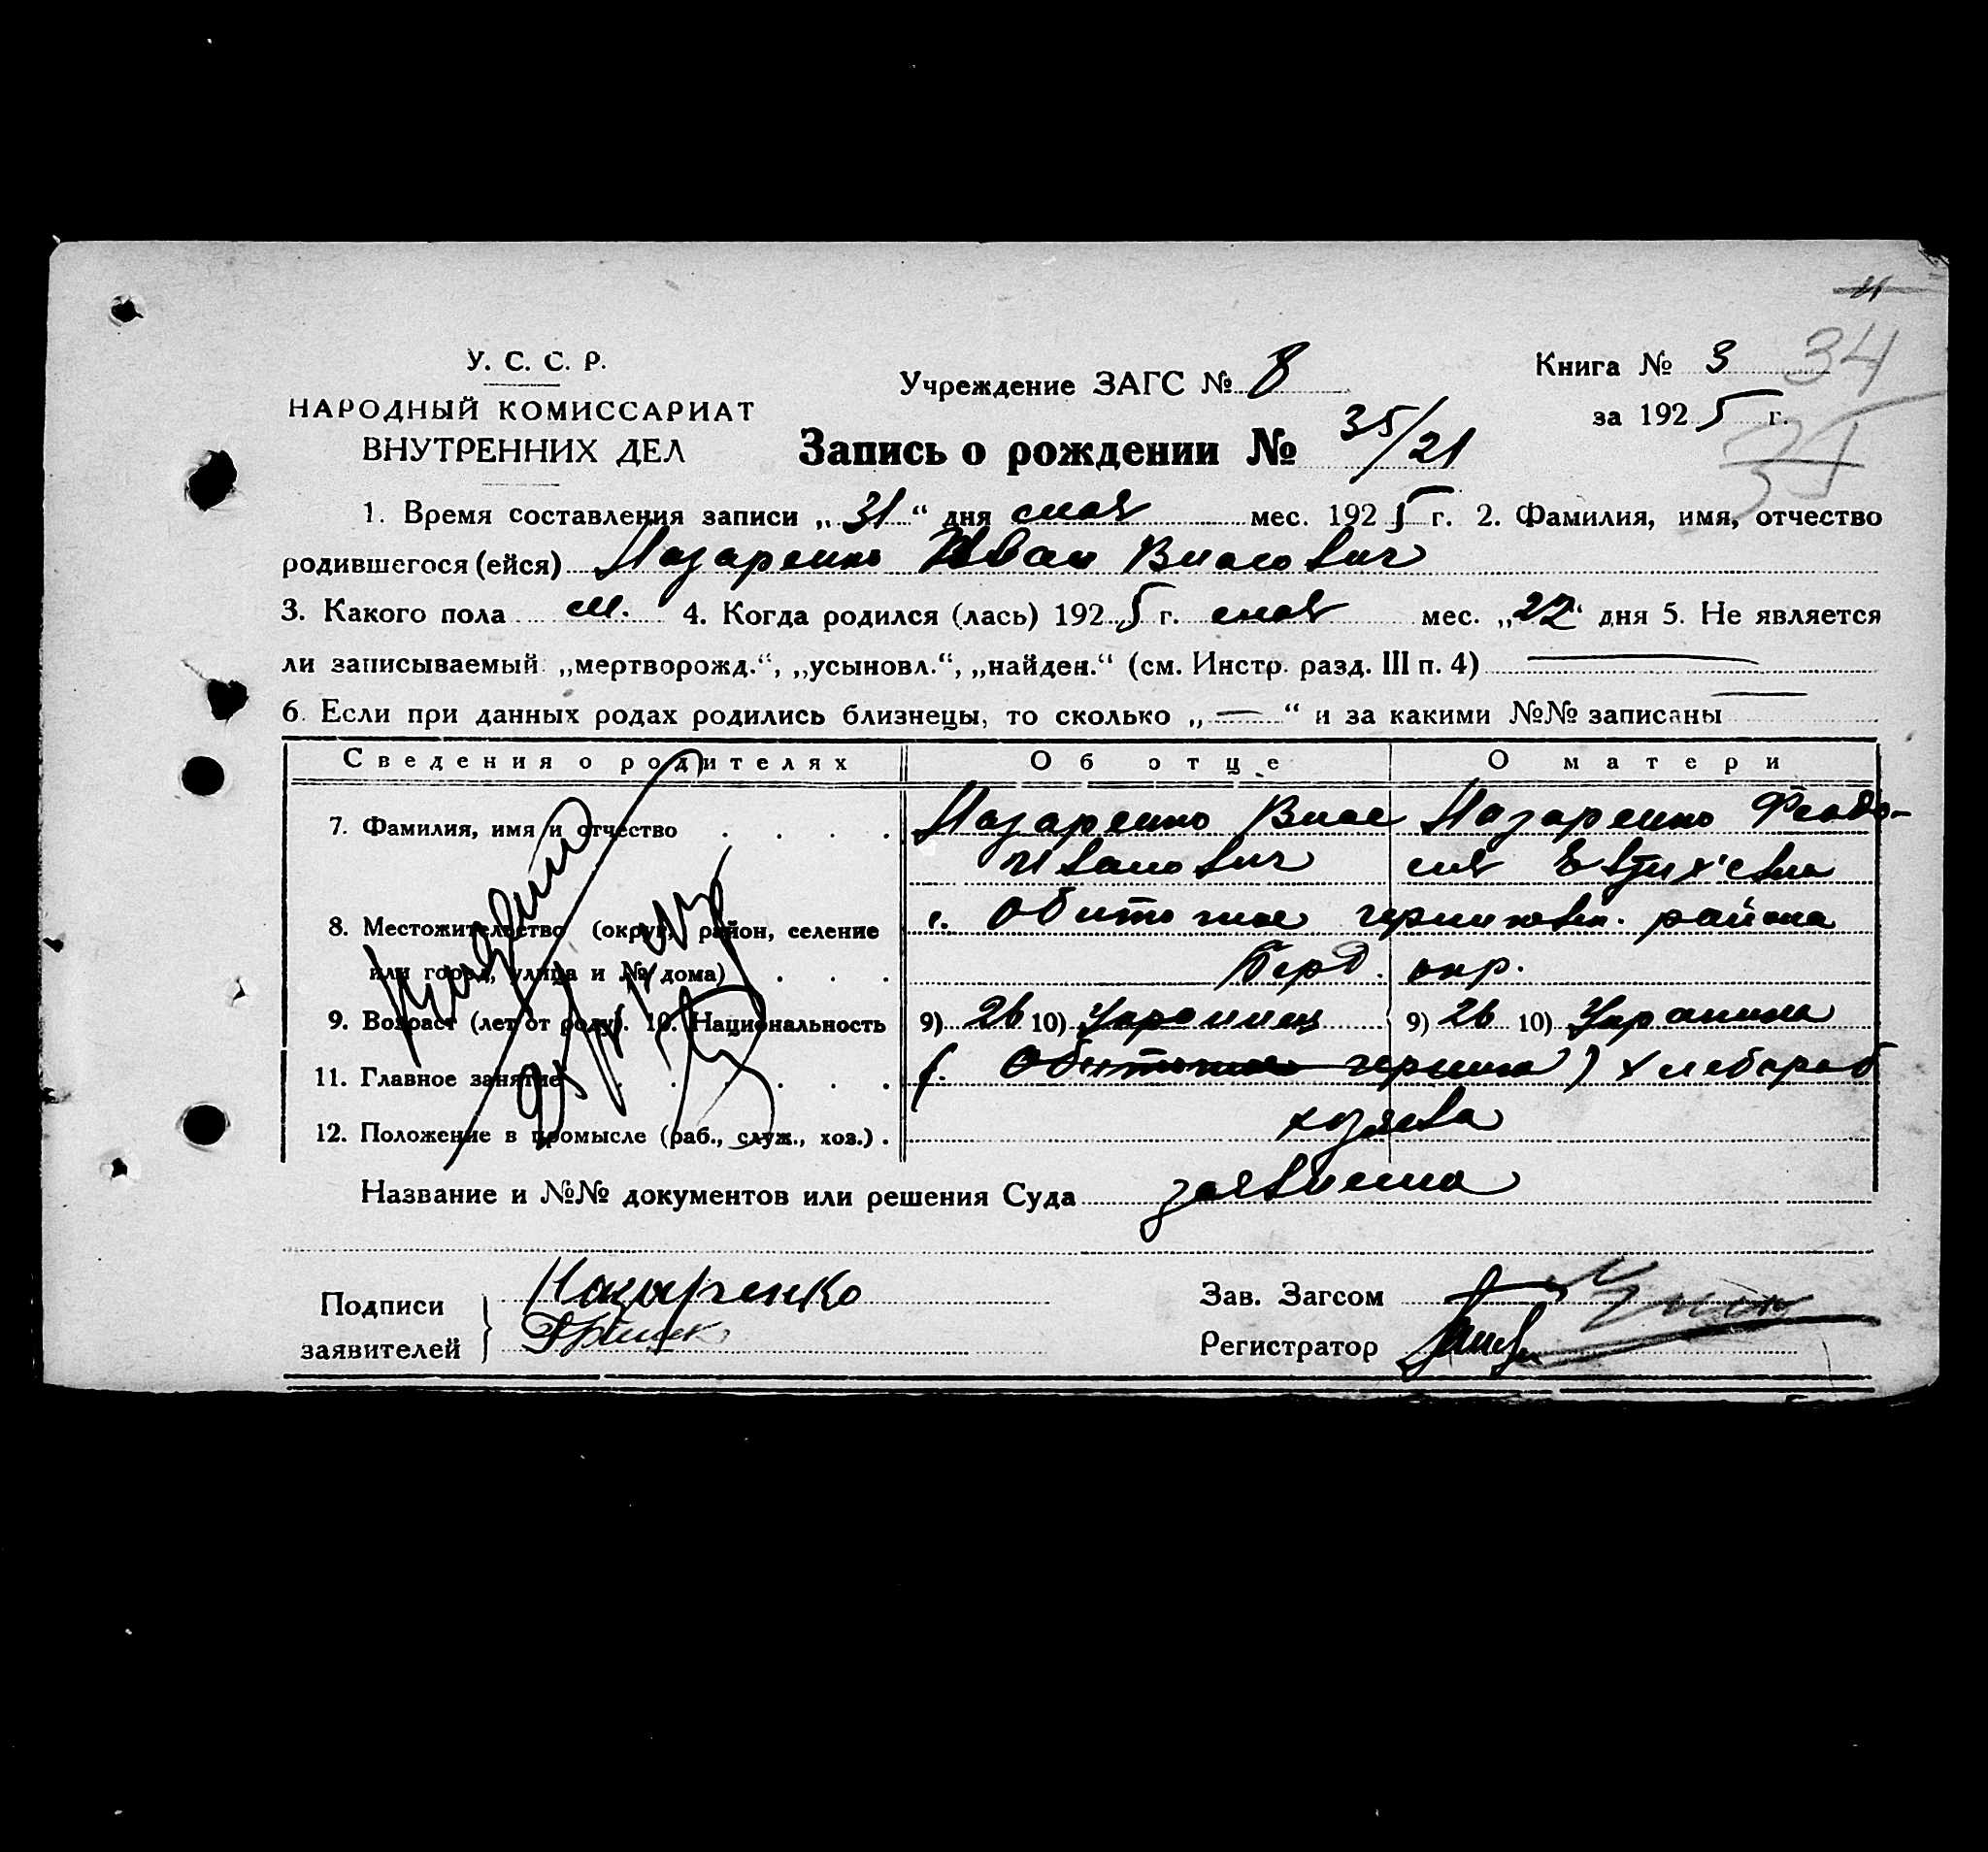 34
У. С. С. Р.
НАРОДНЫЙ КОМИССАРИАТ
ВНУТРЕННИХ ДЕЛ
Учреждение ЗАГС № 8
Книга № 3
за 1925 г.
Запись о рождении № 35/21
1. Время составления записи „31“ дня мая мес. 1925 г. 2. Фамилия, имя, отчество
родившегося (ейся) Назаренко Иван Власович
3. Какого пола м. 4. Когда родился (лась) 1925 г. мая мес. „22“ дня 5. Не является
ли записываемый „мертворожд.“, „усыновл.“, „найден.“ (см. Инстр. разд. III п. 4) —
6. Если при данных родах родились близнецы, то сколько „—“ и за какими №№ записаны —
Сведения о родителях Об отце О матери
7. Фамилия, имя и отчество . . . . Назаренко Влас Назаренко Феодо-
Иванович сия Евтихьевна
8. Местожительство (округ, район, селение с. Обиточное черниговск. района
или город, улица и № дома) . . . Берд. окр.
9. Возраст (лет от роду). 10. Национальность 9) 26 10) Украинец 9) 26 10) Украинка
11. Главное занятие . . . . . . (с. Обиточное) хлебороб
12. Положение в промысле (раб., служ., хоз.) . хозяева
Название и №№ документов или решения Суда
Подписи
заявителей
Назаренко
Зав. Загсом
Регистратор